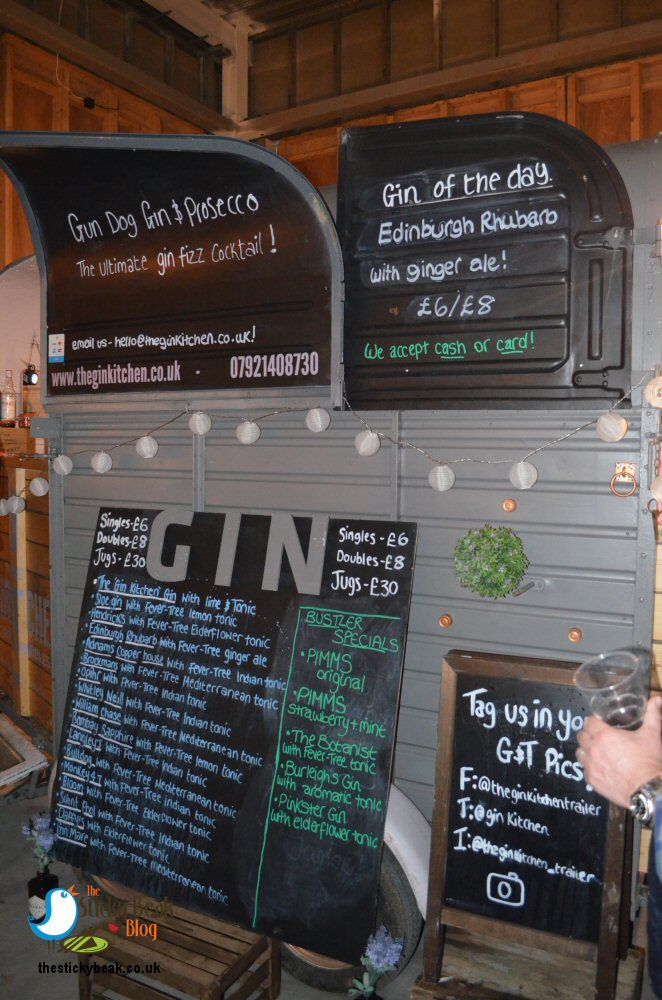 Gun Dog Gin & Prosecco
The ultimate gin fizz cocktail!
email us - hello@theginkitchen.co.uk!
www.theginkitchen.co.uk - 07921408730
Gin of the day.
Edinburgh Rhubarb
with ginger ale!
£6/£8
We accept cash or card!
Singles - £6
Doubles - £8
Jugs - £30
GIN
Singles - £6
Doubles - £8
Jugs - £30
The Gin Kitchen Gin with lime & Tonic
Sloe gin with Fever-Tree lemon tonic
Hendrick's with Fever-Tree Elderflower tonic
Edinburgh Rhubarb with Fever-Tree ginger ale
Adnams Copper house with Fever-Tree Indian tonic
Brockmans with Fever-Tree Mediterranean tonic
Opihr with Fever-Tree Indian tonic
Whitley Neill with Fever-Tree Indian tonic
William Chase with Fever-Tree Mediterranean tonic
Bombay Sapphire with Fever-Tree lemon tonic
Langley's with Fever-Tree Indian tonic
with Fever-Tree Mediterranean tonic
Monkey 47 with Fever-Tree Indian tonic
Bloom with Fever-Tree Elderflower tonic
Silent Pool with Fever-Tree Indian tonic
with Elderflower tonic
Gin Mare with Fever-Tree mediterranean tonic
BUSTLER
SPECIALS
• PIMMS
original
• PIMMS
strawberry + mint
• The Botanist
with fever-Tree tonic
• Burleigh's Gin
with aromatic tonic
• Pinkster Gin
with elderflower tonic
Tag us in you
G&T Pics!
F: @theginkitchentrailer
T: @gin kitchen
I: @theginkitchen_trailer
The
Sticky Beak
Blog
thestickybeak.co.uk